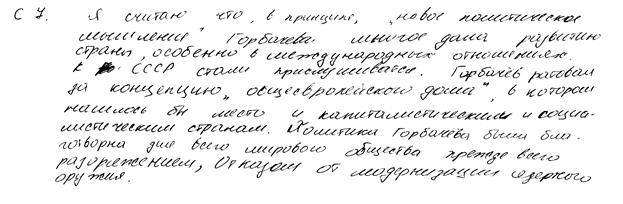 С 7. Я считаю что, в принципе, „новое политическое
мышление" Горбачева многое дала развитию
страны, особенно в международных отношениях.
к СССР стали прислушиваться. Горбачёв ратовал
за концепцию „общеевропейского дома", в котором
нашлось бы место и капиталистическим и социа-
листическим странам. Политика Горбачева была бла-
готворна для всего мирового общества прежде всего
разоружением, отказом от модернизации ядерного
оружия.